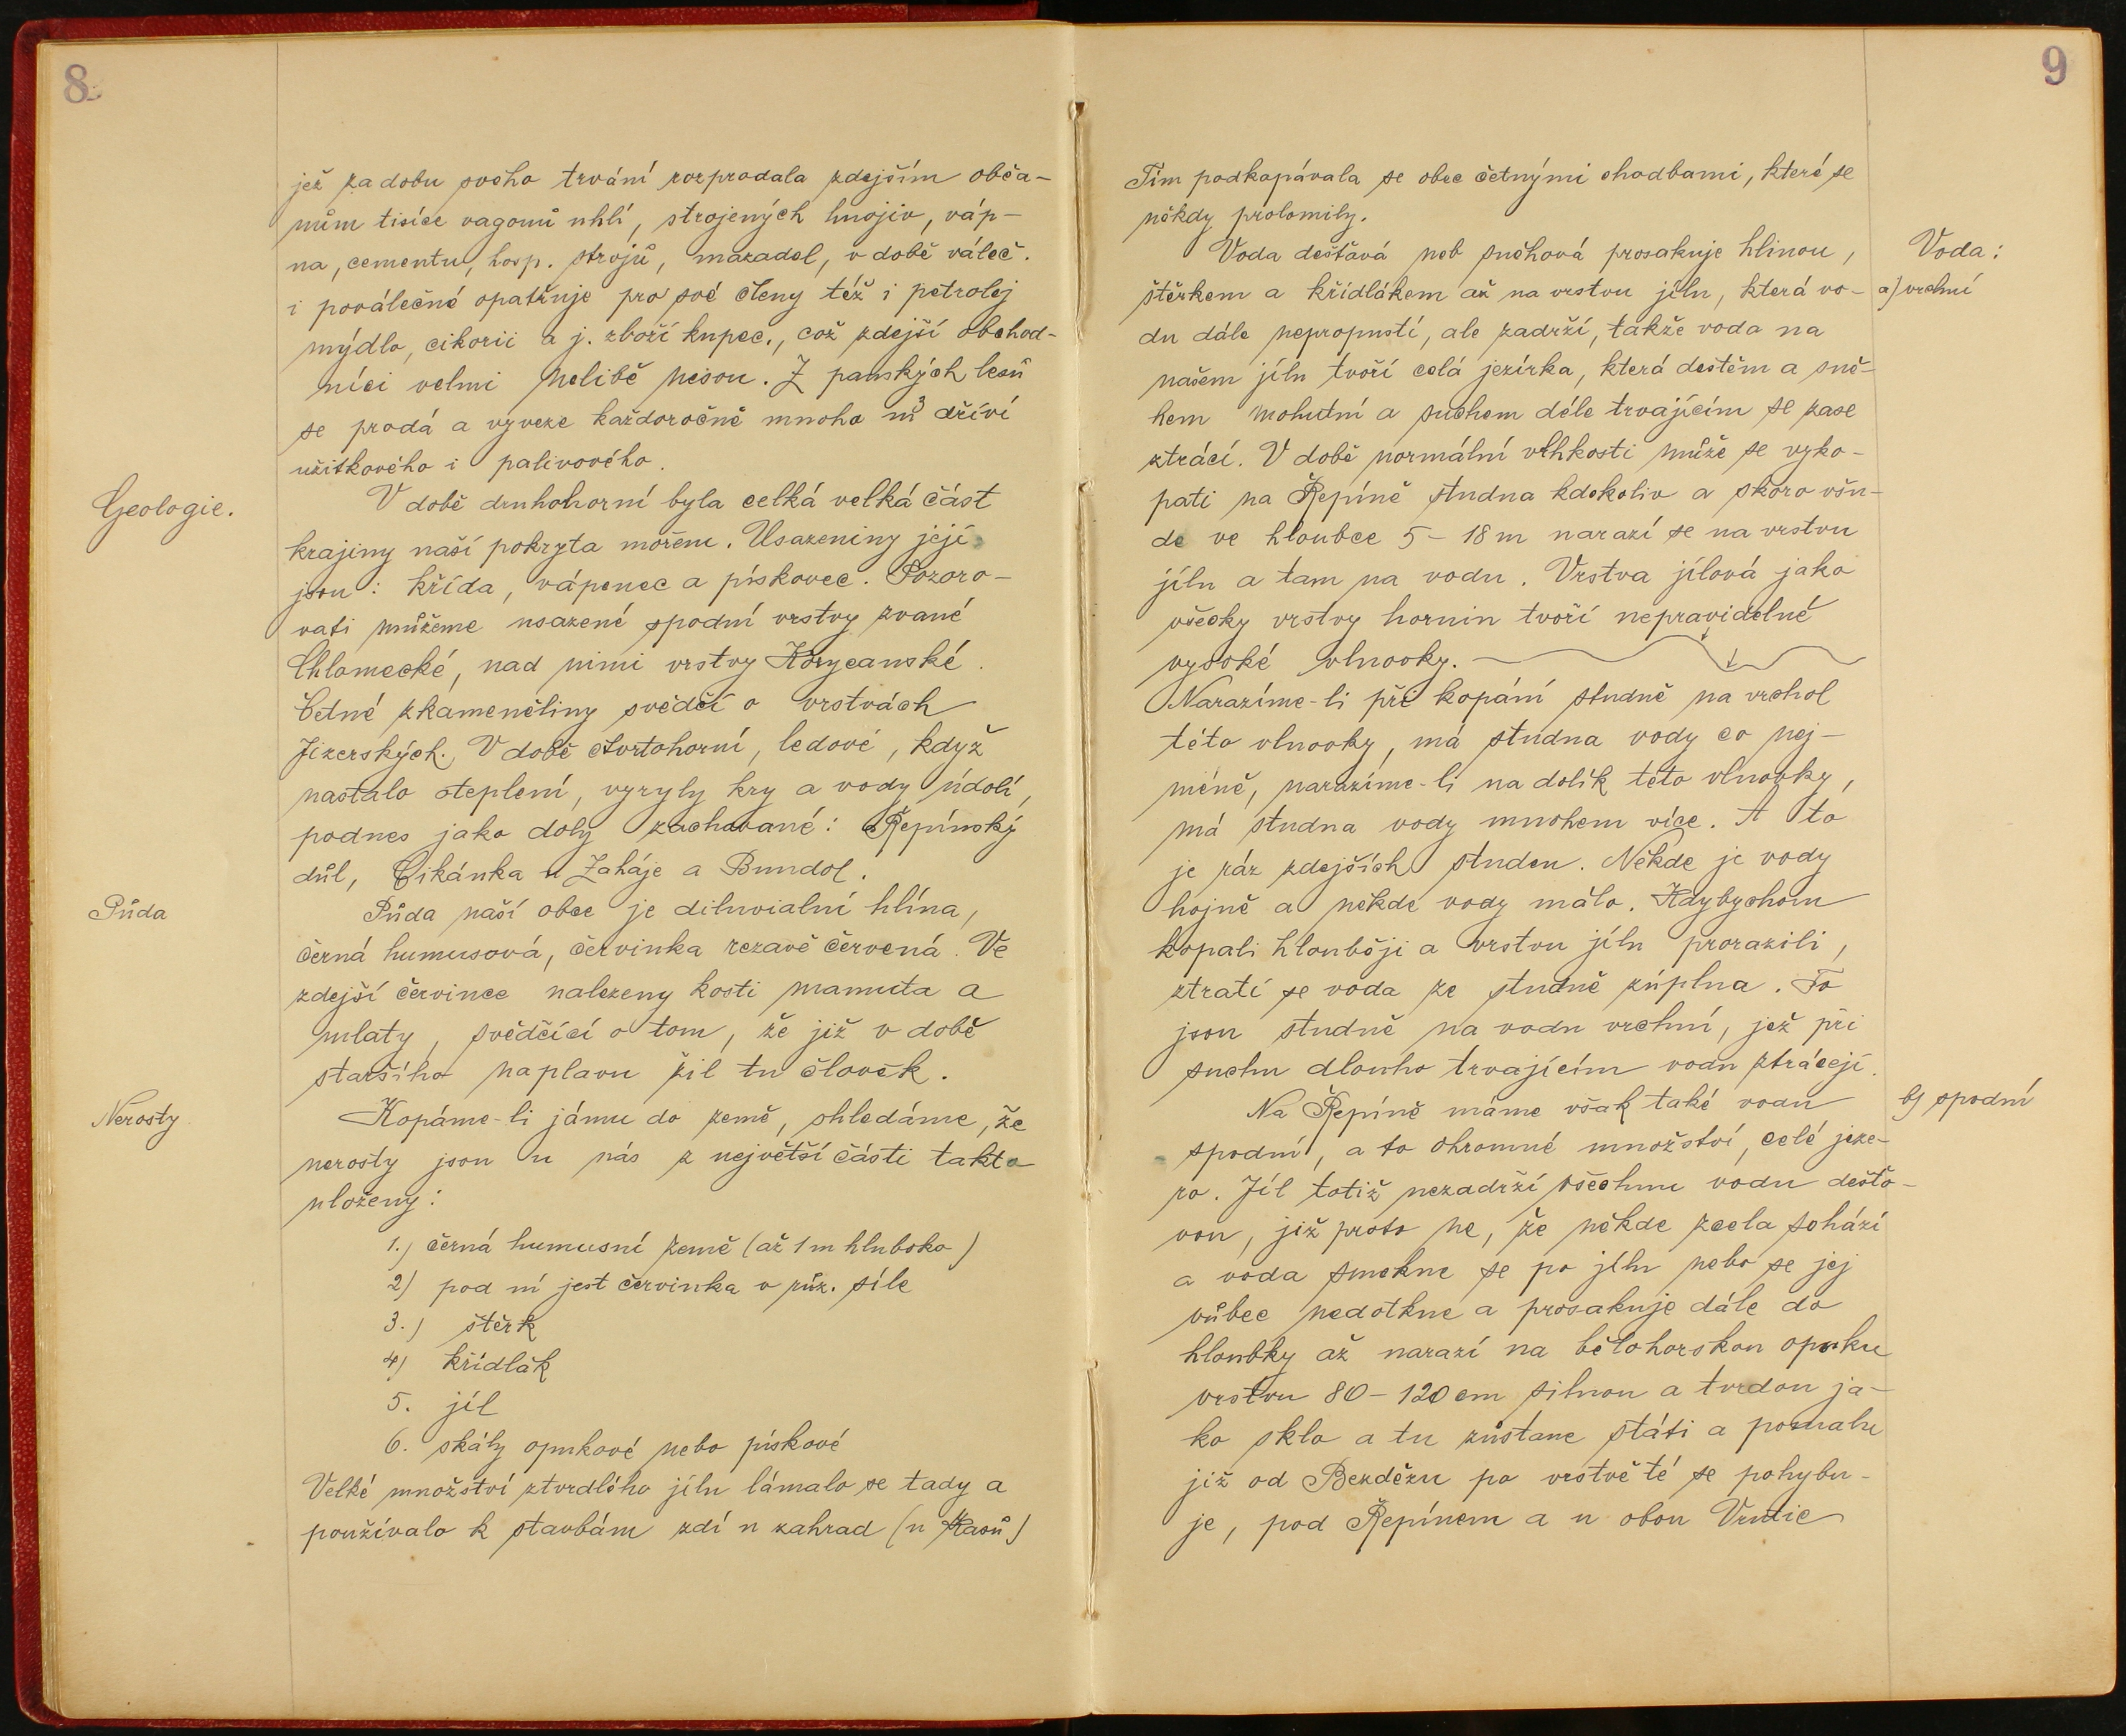 8
jež za dobu svého trvání rozprodala zdejším obča-
nům tisíce vagonů uhlí, strojených hnojiv, váp-
na, cementu, hosp. strojů, mazadel, v době váleč.
i poválečné opatřuje pro své členy též i petrolej
mýdlo, cikorii a j. zboží kupec., což zdejší obchod-
níci velmi nelibě nesou. Z panských lesů
se prodá a vyveze každoročně mnoho m³ dříví
užitkového i palivového.
Geologie.
V době druhohorní byla celká velká část
krajiny naší pokryta mořem. Usazeniny její
jsou: křída, vápenec a pískovec. Pozoro-
vati můžeme usazené spodní vrstvy zvané
Chlomecké, nad nimi vrstvy Korycanské.
Četné zkameněliny svědčí o vrstvách
Jizerských. V době čtvrtohorní, ledové, když
nastalo oteplení, vyryly kry a vody údolí,
podnes jako doly zachované: Řepínský
důl, Cikánka u Zaháje a Bundol.
Půda
Půda naší obce je diluvialní hlína,
černá humusová, červinka rezavě červená. Ve
zdejší červince nalezeny kosti mamuta a
mlaty, svědčící o tom, že již v době
staršího naplavu žil tu člověk.
Nerosty
Kopáme-li jámu do země, shledáme, že
nerosty jsou u nás z největší části takto
uloženy:
1.) černá humusní země (až 1 m hluboko)
2) pod ní jest červinka v růz. síle
3.) štěrk
4) křídlák
5. jíl
6. skály opukové nebo pískové
Velké množství ztvrdlého jílu lámalo se tady a
používalo k stavbám zdí u zahrad (u Kasů)
9
Tím podkopávala se obec četnými chodbami, které se
někdy prolomily.
Voda:
Voda dešťová neb sněhová prosakuje hlinou,
a) vrchní
štěrkem a křídlákem až na vrstvu jílu, která vo-
du dále nepropustí, ale zadrží, takže voda na
našem jílu tvoří celá jezírka, která deštěm a sně-
hem mohutní a suchem déle trvajícím se zase
ztrácí. V době normální vlhkosti může se vyko-
pati na Řepíně studna kdekoliv a skoro všu-
de ve hloubce 5 - 18 m narazí se na vrstvu
jílu a tam na vodu. Vrstva jílová jako
všecky vrstvy hornin tvoří nepravidelné
vysoké vlnovky.
Narazíme-li při kopání studně na vrchol
této vlnovky, má studna vody co nej-
méně, narazíme-li na dolík této vlnovky,
má studna vody mnohem více. A to
je ráz zdejších studen. Někde je vody
hojně a někde vody málo. Kdybychom
kopali hlouběji a vrstvu jílu prorazili,
ztratí se voda ze studně zúplna. To
jsou studně na vodu vrchní, jež při
suchu dlouho trvajícím vodu ztrácejí.
b) spodní
Na Řepíně máme však také vodu
spodní, a to ohromné množství, celé jeze-
ro. Jíl totiž nezadrží všechnu vodu dešťo-
vou, již proto ne, že někde zcela schází
a voda smekne se po jílu nebo se jej
vůbec nedotkne a prosakuje dále do
hloubky až narazí na bělohorskou opuku
vrstvu 80 - 120 cm silnou a tvrdou ja-
ko sklo a tu zůstane státi a pomalu
již od Bezdězu po vrstvě té se pohybu-
je, pod Řepínem a u obou Vrutic